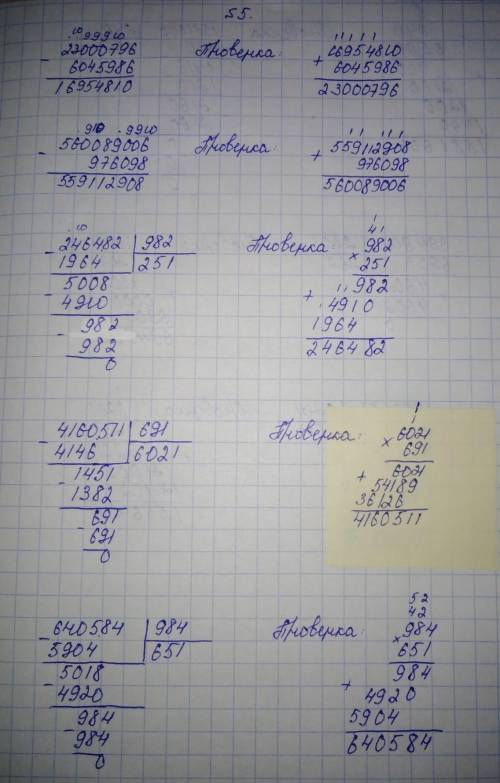 55.
. 10 9 9 9 10
- 23000796
6045986
16954810
Проверка:
1 1 1 1
+ 16954810
6045986
23000796
. 9 10 . 9 9 10
- 560089006
976098
559112908
Проверка:
1 1 1 1 1
+ 559112908
976098
560089006
. 10
- 246482 | 982
1964 | 251
- 5008
4910
- 982
982
0
Проверка
1
4 1
× 982
251
1 1
+ 982
4910
1964
246482
- 4160511 | 691
4146 | 6021
- 1451
1382
- 691
691
0
Проверка:
1
× 6021
691
+ 6021
54189
36126
4160511
- 640584 | 984
5904 | 651
- 5018
4920
- 984
984
0
Проверка:
5 2
4 2
× 984
651
+ 984
4920
5904
640584